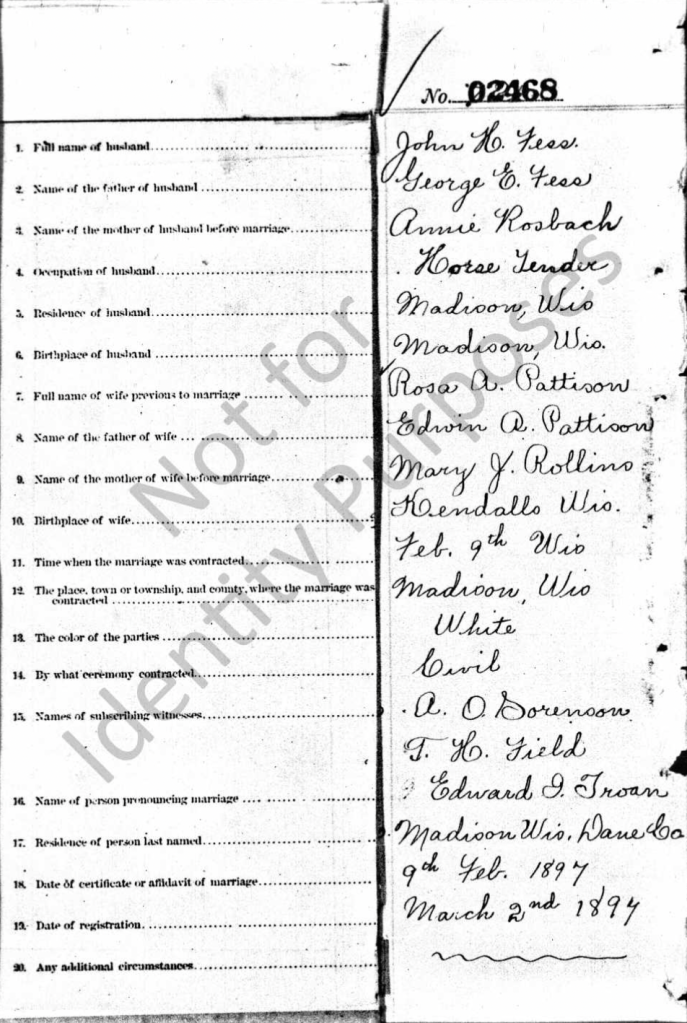 No. 02468
1. Full name of husband
John H. Fess.
2. Name of the father of husband
George E. Fess
3. Name of the mother of husband before marriage
Annie Rosbach
4. Occupation of husband
Horse Tender
5. Residence of husband
Madison, Wis
6. Birthplace of husband
Madison, Wis.
7. Full name of wife previous to marriage
Rosa A. Pattison
8. Name of the father of wife
Edwin A. Pattison
9. Name of the mother of wife before marriage
Mary J. Rollins
10. Birthplace of wife
Kendalls Wis.
11. Time when the marriage was contracted
Feb. 9th Wis
12. The place, town or township, and county, where the marriage was contracted
Madison, Wis
13. The color of the parties
White
14. By what ceremony contracted
Civil
15. Names of subscribing witnesses
A. O. Sorenson
T. H. Field
16. Name of person pronouncing marriage
Edward I. Troan
17. Residence of person last named
Madison Wis. Dane Co
18. Date of certificate or affidavit of marriage
9th Feb. 1897
19. Date of registration
March 2nd 1897
20. Any additional circumstances
Not for
Identity Purposes